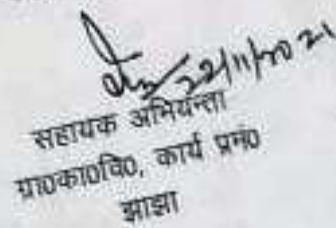 22/11/2021
सहायक अभियन्ता
ग्रा०का०वि०, कार्य प्रमं०
झाझा